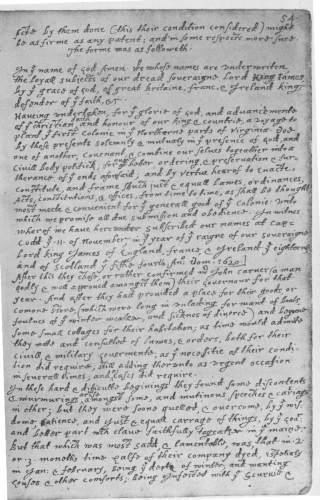 54
facte by them done (this their condition considered) might
be as firme as any patent; and in some respects more sure.
The forme was as followeth.
In ye name of god Amen. We whose names are underwriten,
the loyall subjects of our dread soveraigne Lord King James,
by ye grace of god, of great britaine, franc, & Ireland king,
defender of ye faith, &c.
Haveing undertaken, for ye glorie of god, and advancemente
of ye christian faith and honour of our king & countrie, a voyage to
plant ye first colonie in ye Northerne parts of Virginia. Doe
by these presents solemnly & mutualy in ye presence of god, and
one of another, covenant, & combine our selves togeather into a
civill body politick; for our better ordering, & preservation & fur-
therance of ye ends aforesaid; and by vertue hearof to enacte,
constitute, and frame such just & equall lawes, ordinances,
Acts, constitutions, & offices, from time to time, as shall be thought
most meete & convenient for ye generall good of ye colonie: Unto
which we promise all due submission and obedience. In witnes
wherof we have hereunder subscribed our names at cap-
Codd ye .11. of November, in ye year of ye raigne of our soveraigne
Lord king James of England, franc, & Ireland ye eighteenth
and of Scotland ye fiftie fourth. Ano: Dom. 1620.
After this they chose, or rather confirmed mr John carver (a man
godly & well approved amongst them) their Governour for that
year. And after they had provided a place for their goods, or
comone store, (which were long in unlading for want of boats,
foulnes of ye winter weather, and sicknes of diverce) and begune
some small cottages for their habitation; as time would admite
they mette and consulted of lawes, & orders, both for their
civill & military Govermente, as ye necessitie of their condi-
tion did require, still adding therunto as urgent occasion
in severall times, and as cases did require.
In these hard & difficulte beginings they found some discontents
& murmurings arise amongst some, and mutinous speeches & carriags
in other; but they were soone quelled, & overcome, by ye wis-
dome, patience, and just & equall carrage of things, by ye Govr
and better part wch clave faithfully togeather in ye maine.
But that which was most sadd, & lamentable, was, that in 2.
or 3. moneths time halfe of their company dyed, espetialy
in Jan: & february, being ye depth of winter, and wanting
houses & other comforts; being infected with ye Scurvie &